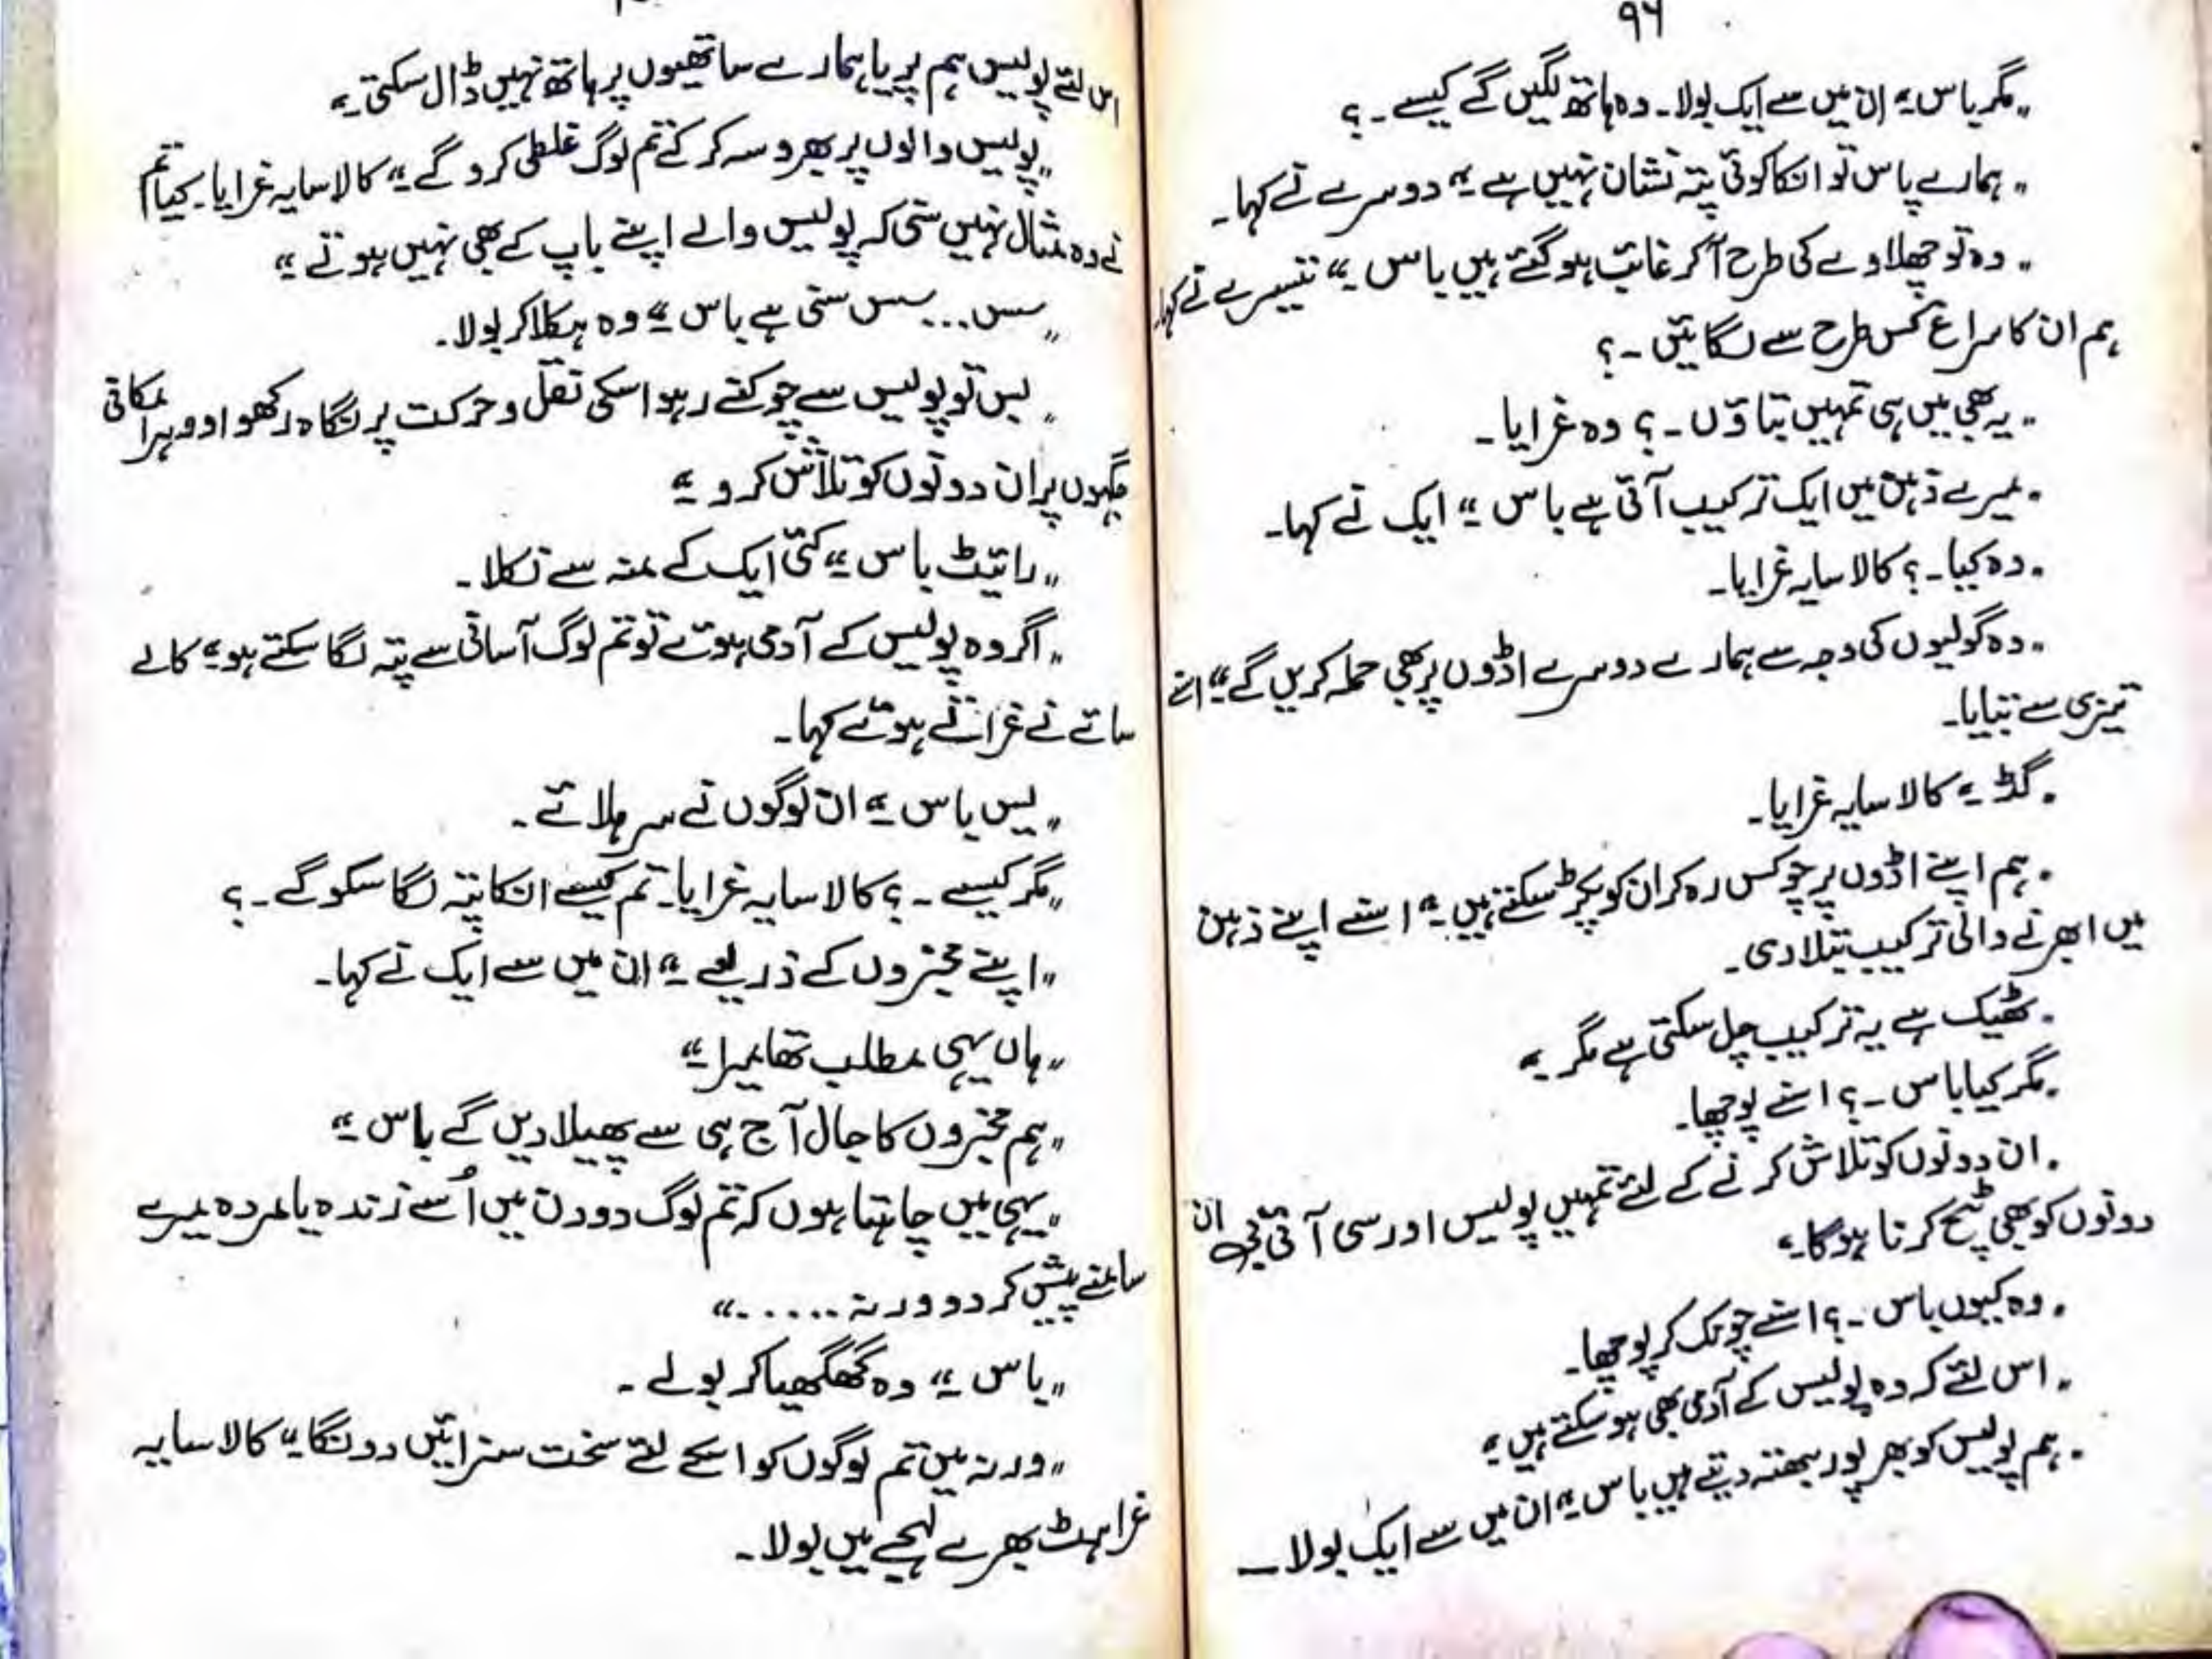 ۹۶
„مگر باس۔“ ان میں سے ایک بولا۔ وہ ہاتھ لگیں گے کیسے۔؟
„ہمارے پاس تو انکا کوئی پتہ نشان نہیں ہے۔“ دوسرے نے کہا۔
„وہ تو چھلاوے کی طرح آکر غائب ہو گئے ہیں باس۔“ تیسرے نے کہا۔
ہم ان کا سراغ کس طرح سے لگائیں۔؟
„یہ بھی میں ہی تمہیں بتاؤں۔؟ وہ غرایا۔
„میرے ذہن میں ایک ترکیب آئی ہے باس۔“ ایک نے کہا۔
„وہ کیا۔؟ کالا سایہ غرایا۔
„وہ گولیوں کی وجہ سے ہمارے دوسرے اڈوں پر بھی حملہ کریں گے۔“ اسنے
تیزی سے بتایا۔
„گڈ۔“ کالا سایہ غرایا۔
„ہم اپنے اڈوں پر چوکس رہ کر ان کو پکڑ سکتے ہیں۔“ اسنے اپنے ذہن
میں ابھرنے والی ترکیب بتلا دی۔
„ٹھیک ہے یہ ترکیب چل سکتی ہے مگر۔“
„مگر کیا باس۔؟ اسنے پوچھا۔
„ان دونوں کو تلاش کرنے کے لئے تمہیں پولیس اور سی آئی ڈی ان
دونوں کو بھی ٹچ کرنا ہوگا۔“
„وہ کیوں باس۔؟ اسنے چونک کر پوچھا۔
„اس لئے کہ وہ پولیس کے آدمی بھی ہو سکتے ہیں۔“
„ہم پولیس کو بھرپور بھتہ دیتے ہیں باس۔“ ان میں سے ایک بولا۔
اس لئے پولیس ہم پر یا ہمارے ساتھیوں پر ہاتھ نہیں ڈال سکتی۔“
„پولیس والوں پر بھروسہ کر کے تم لوگ غلطی کرو گے۔“ کالا سایہ غرایا۔ کیا تم
نے وہ مثال نہیں سنی کہ پولیس والے اپنے باپ کے بھی نہیں ہوتے۔“
„سس... سس سنی ہے باس۔“ وہ ہکلا کر بولا۔
„بس تو پولیس سے چوکنے رہو اسکی نقل و حرکت پر نگاہ رکھو اور ہر امکانی
جگہوں پر ان دونوں کو تلاش کرو۔“
„رائیٹ باس۔“ کئی ایک کے منہ سے نکلا۔
„اگر وہ پولیس کے آدمی ہوئے تو تم لوگ آسانی سے پتہ لگا سکتے ہو۔“ کالے
سائے نے غراتے ہوئے کہا۔
„یس باس۔“ ان لوگوں نے سر ہلائے۔
„مگر کیسے۔؟ کالا سایہ غرایا۔ تم کیسے انکا پتہ لگا سکو گے۔؟
„اپنے مخبروں کے ذریعے۔“ ان میں سے ایک نے کہا۔
„ہاں یہی مطلب تھا میرا۔“
„ہم مخبروں کا جال آج ہی سے پھیلا دیں گے باس۔“
„یہی میں چاہتا ہوں کہ تم لوگ دو دن میں اُسے زندہ یا مردہ میرے
سامنے پیش کر دو ورنہ ......“
„باس۔“ وہ گھگھیا کر بولے۔
„ورنہ میں تم لوگوں کو اسکے لئے سخت سزائیں دونگا۔“ کالا سایہ
غراہٹ بھرے لہجے میں بولا۔